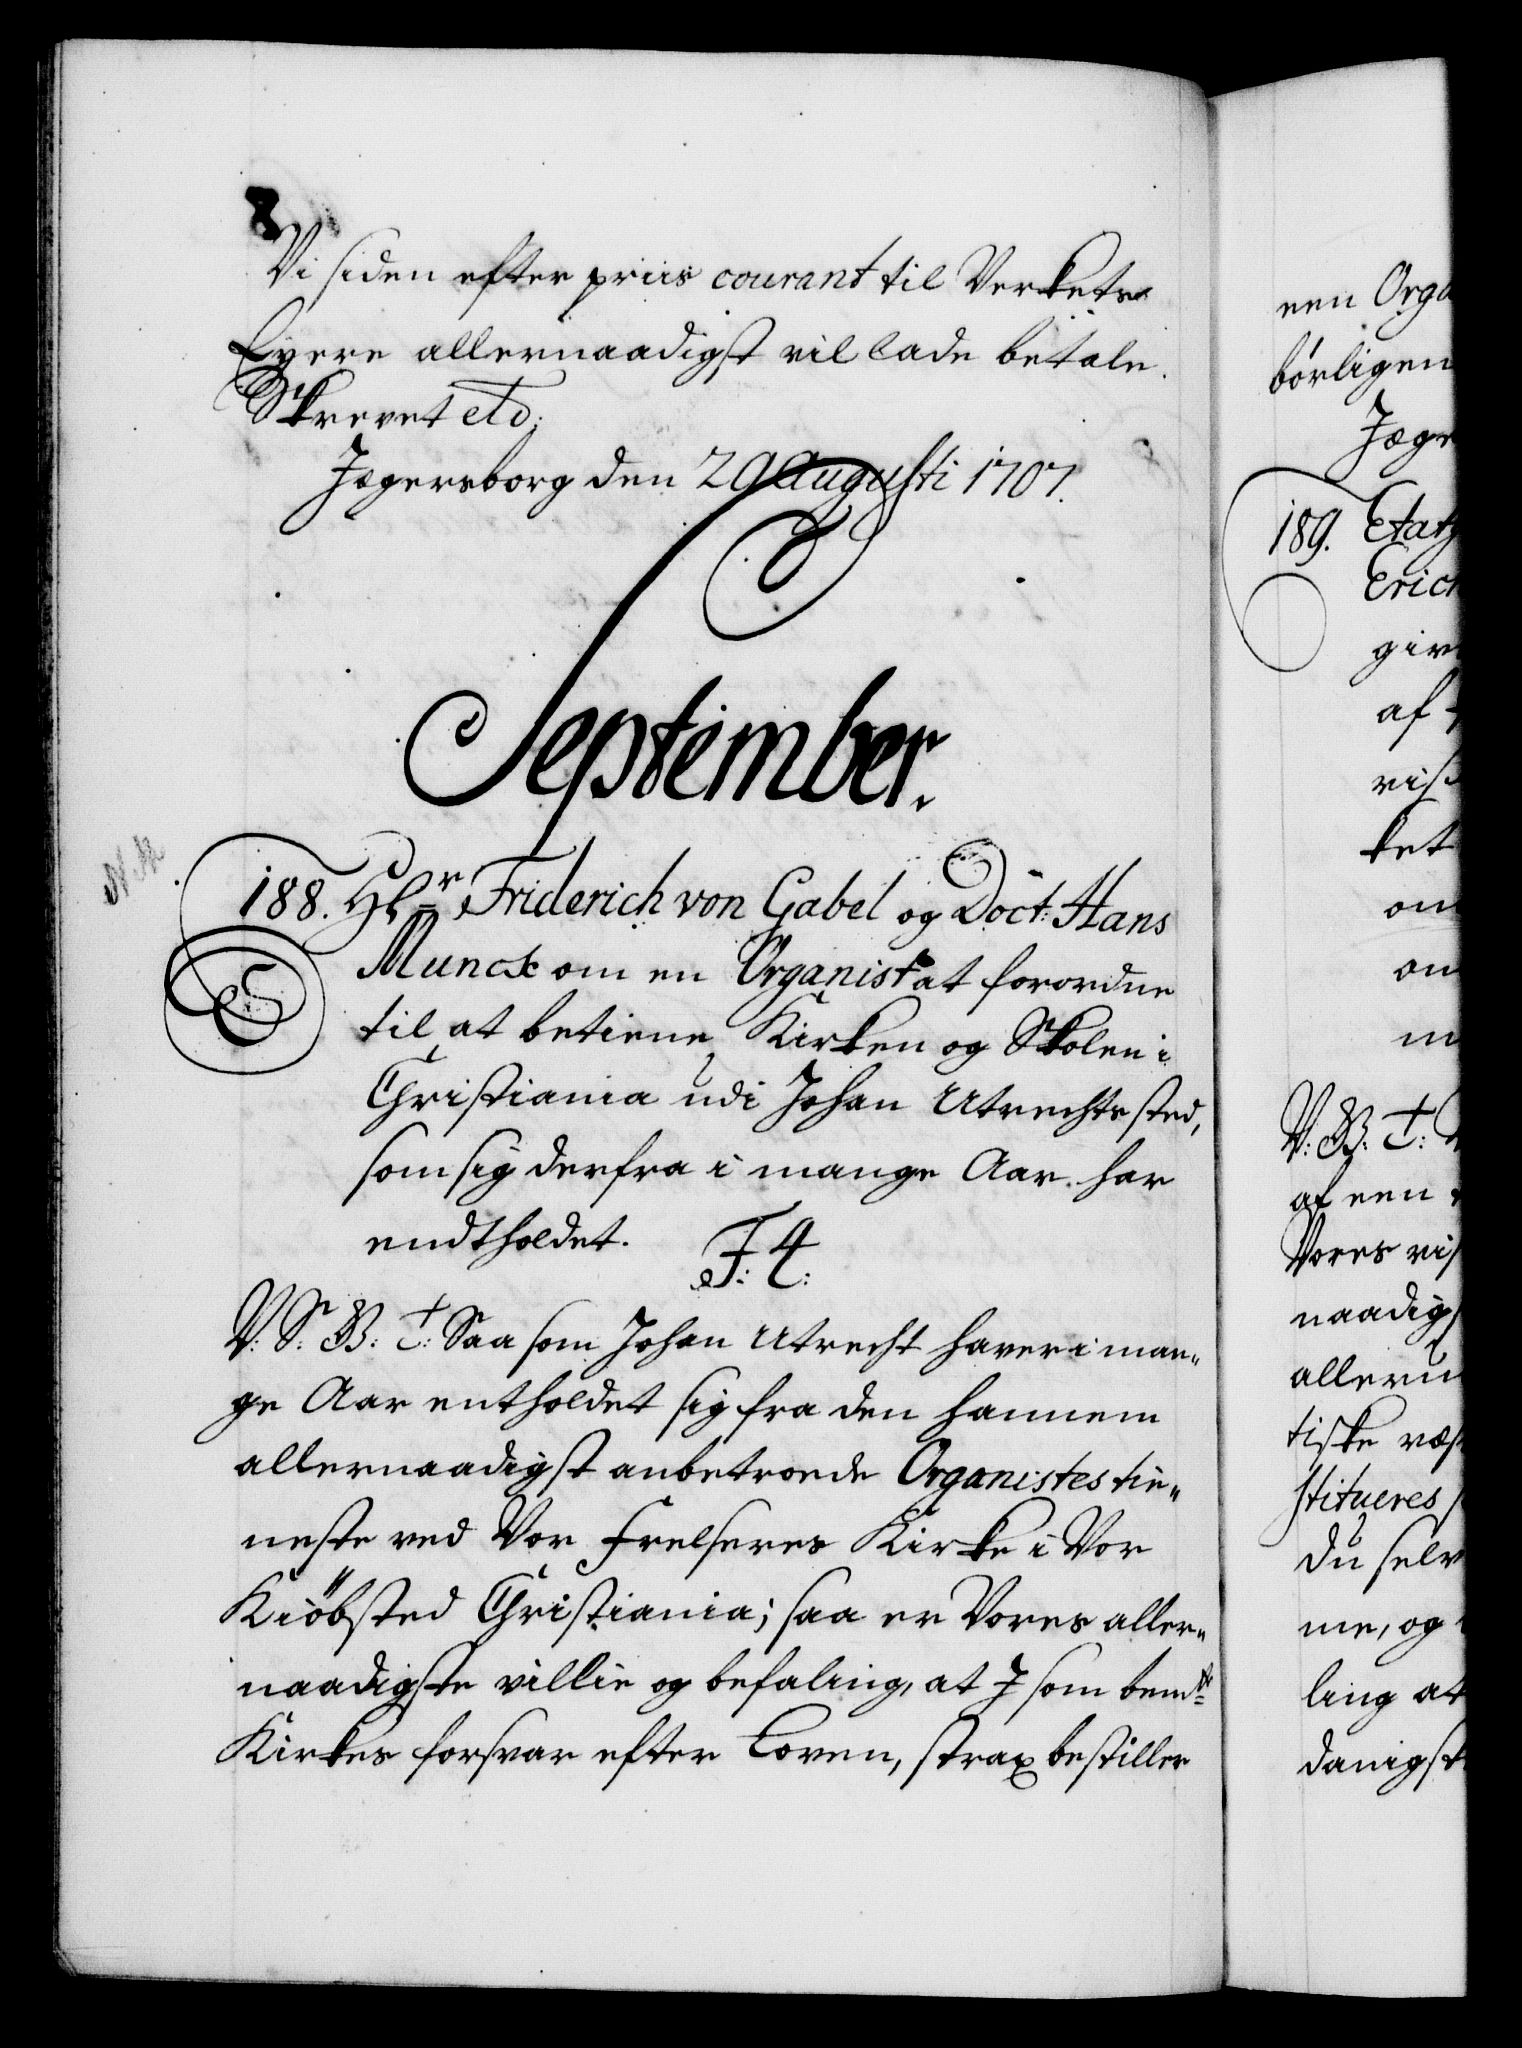 Vi siden efter priis courant til Verkets
Eyere allernaadigst vil lade betale.
Skrevet etc:
Jægersborg den 29 Augusti 1707.
September.
188. Hr Friderich von Gabel og Doct: Hans
Munck om en Organist at forordne
til at betiene Kirken og Skolen i
Christiania udi Johan Utrechts sted,
som sig derfra i mange Aar har
endtholdet.
F: 4:
V: S: B: T: Saa som Johan Utrecht haver i man„
ge Aar entholdet sig fra den hannem
allernaadigst anbetroede Organistes tie„
neste ved Vor Frelseres Kirke i Vor
Kiöbsted Christiania; saa er Vores aller„
naadigste villie og befaling, at J som bemte
Kirkes forsvar efter Loven, strax bestiller
een Orga
børligen
Jæge
189. Etatz
Erich
giv
af
vis
ket
om
om
m
V: B: T:
af een
Vores vis
naadigs
alleru
tiske væs
stitueres
du selv
me, og
ling at
danigst